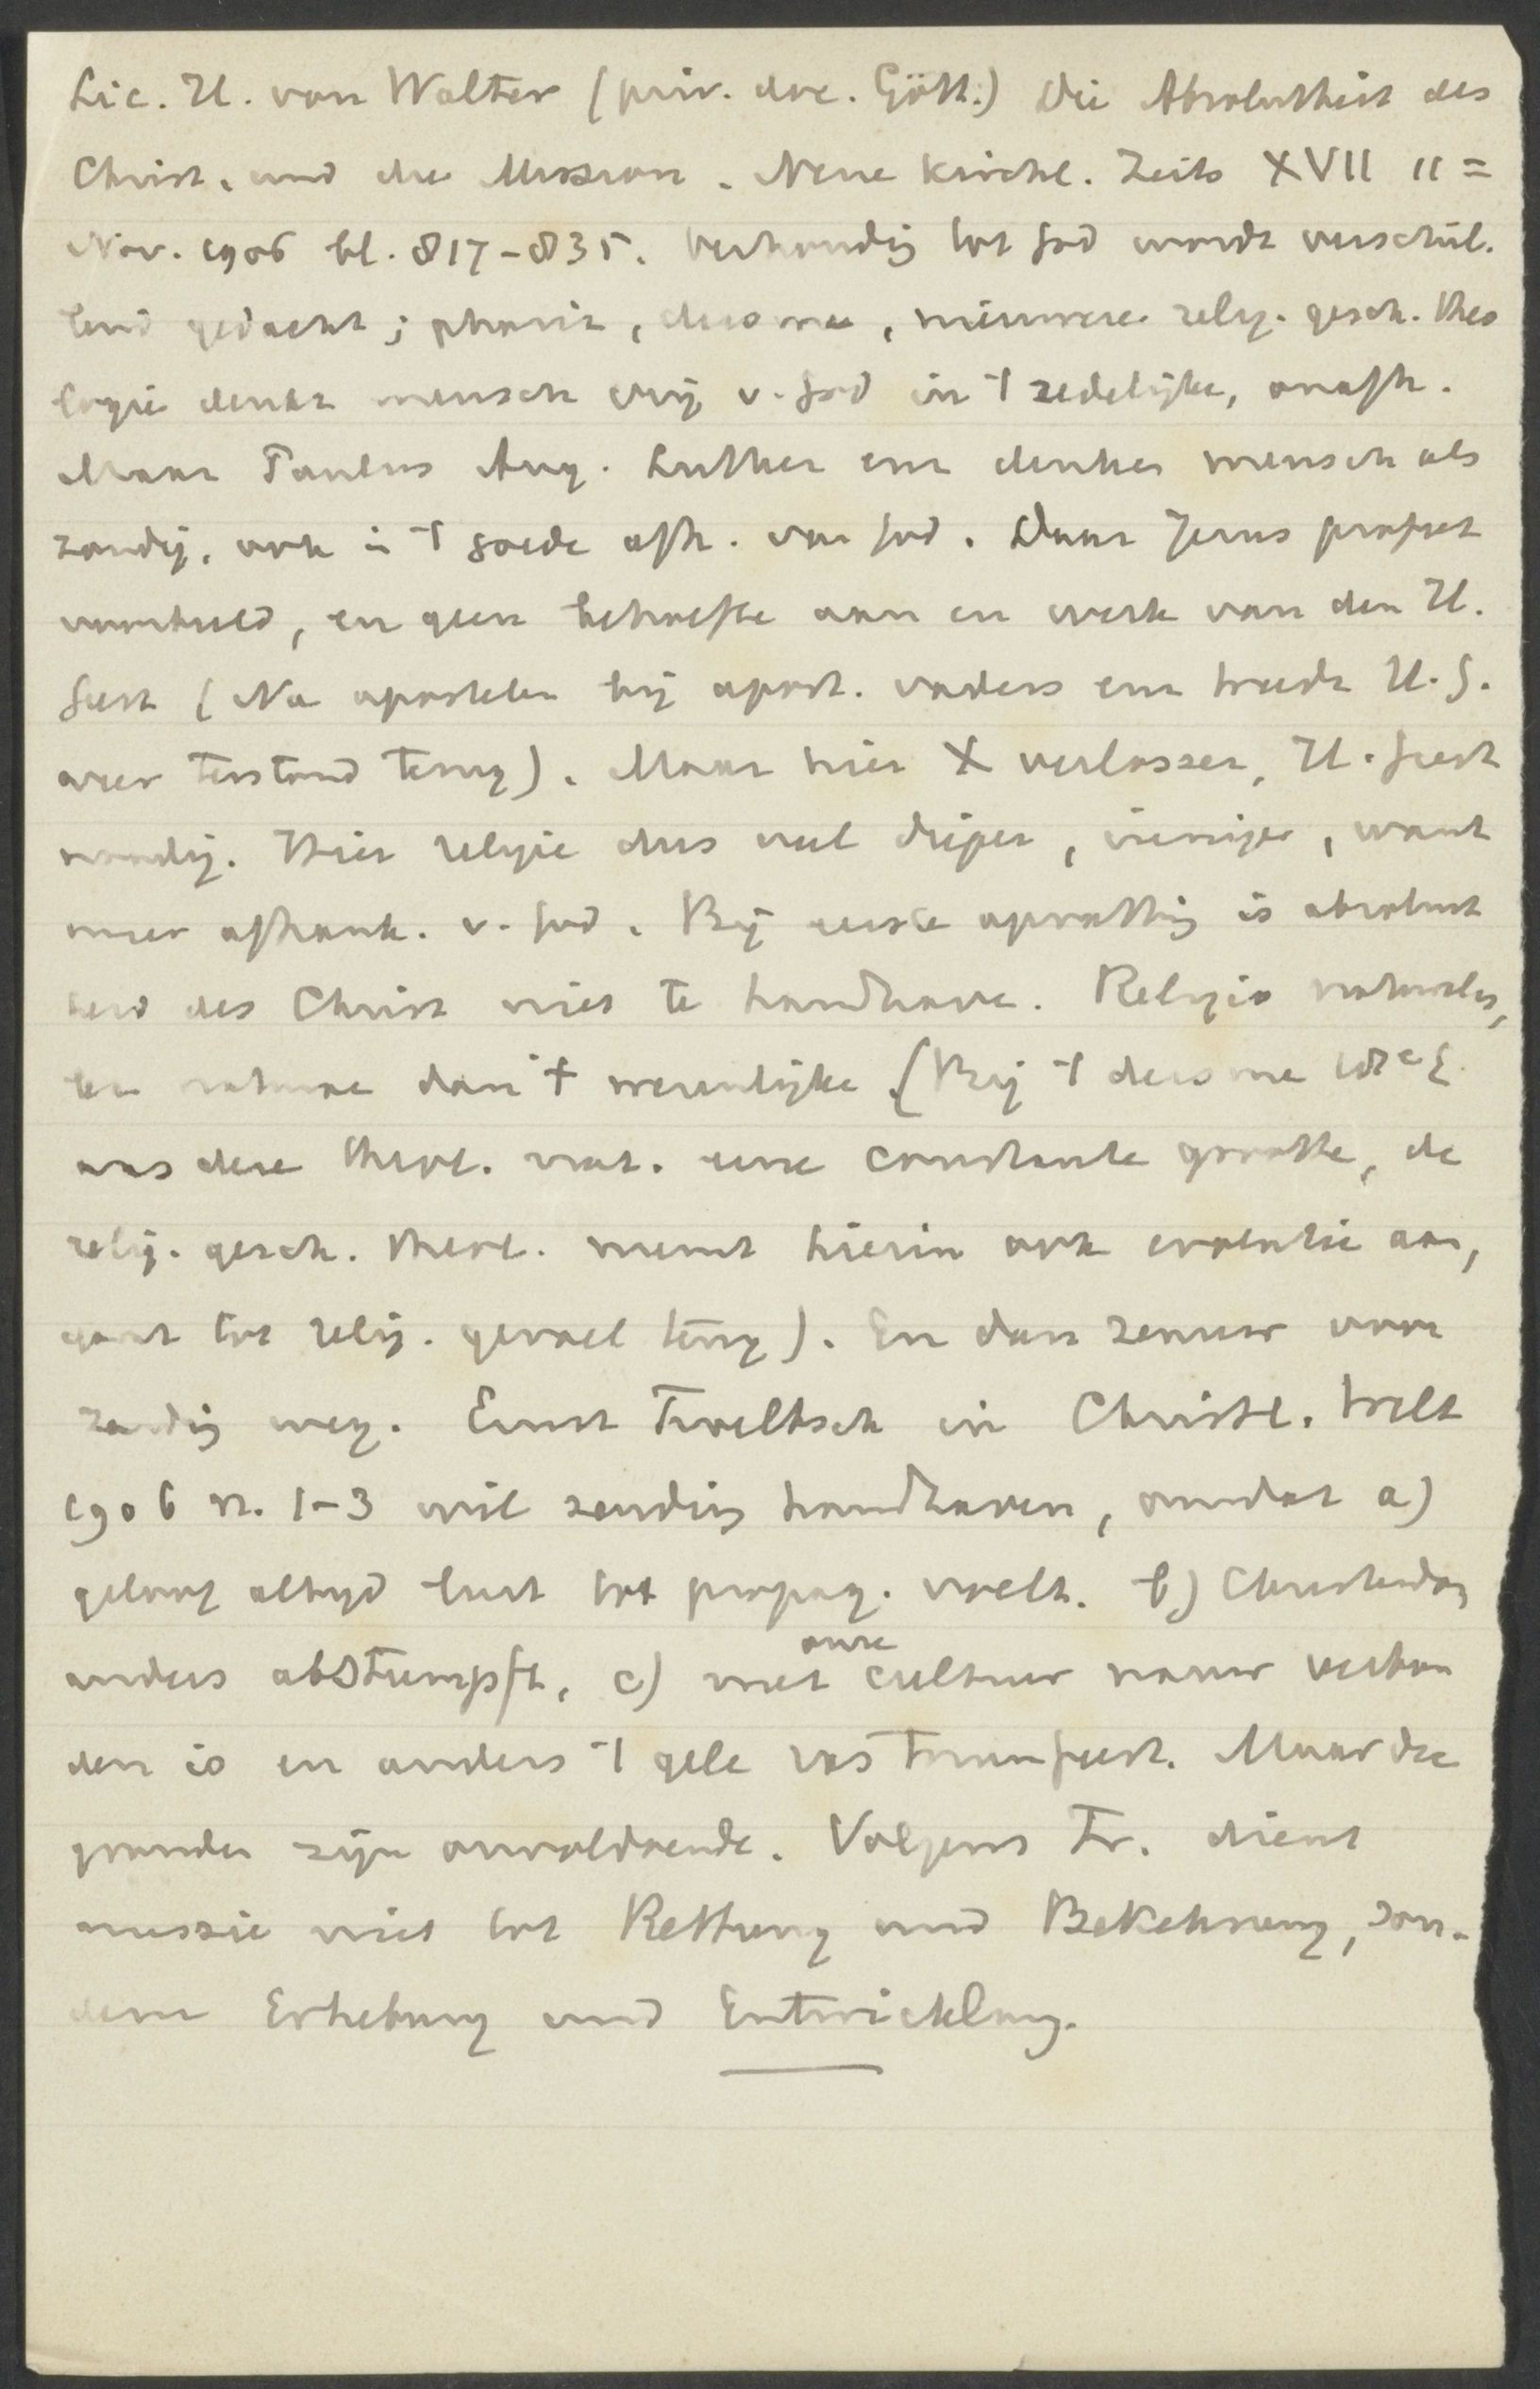 Lic. H. von Walter (priv. doc. Gött.) Die Absolutheit des
Christ. und die Mission. Neue Kirchl. Zeits XVII 11 =
Nov. 1906 bl. 817-835. Verhoudg tot God wordt verschil-
lend gedacht; phariz, deisme, nieuwere relig. gesch. theo
logie denkt mensch vrij v. God in 't zedelijke, onafh.
Maar Paulus Aug. Luther enz denken mensch als
zondig, ook in 't goede afh. van God. Daar Jezus profeet
voorbeeld, en geen behoefte aan en werk van den H.
Geest (Na apostelen bij apost. vaders enz treedt H. G.
zeer terstond terug). Maar hier X verlosser, H. Geest
noodig. Hier religie dus veel dieper, inniger, want
meer afhank. v. God. Bij eerste opvattig is absoluut
heid des Christ niet te handhave. Religio naturalis,
ten natuur dan 't wezenlijke (Bij 't deisme 18e E.
was deze theol. nat. eene constante grootte, de
relig. gesch. theol. neemt hierin ook evolutie aan,
gaat tot relig. gevoel terug). En dan zenuw voor
zendig weg. Ernst Troeltsch in Christl. Welt
1906 n. 1-3 wil zendig handhaven, omdat a)
geloof altijd lust tot propag. voelt. b) Christendom
anders abstumpft, c) met onze cultuur nauw verbon
den is en anders 't gele ras triumfeert. Maar die
gronden zijn onvoldoende. Volgens Tr. dient
missie niet tot Rettung und Bekehrung, son-
dern Erhebung und Entwicklung.